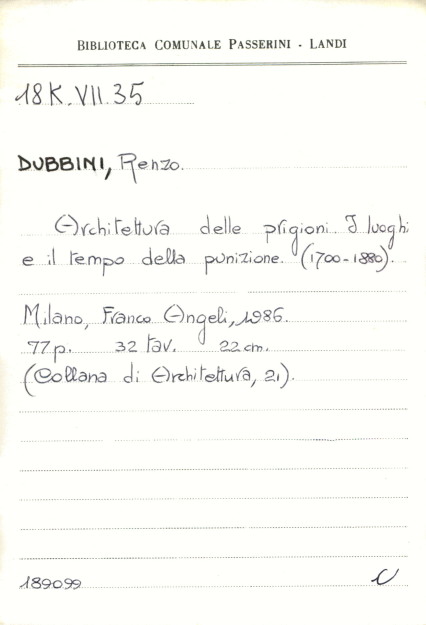 BIBLIOTECA COMUNALE PASSERINI - LANDI
18K.VII.35
DUBBINI, Renzo.
Architettura delle prigioni. I luoghi
e il tempo della punizione. (1700-1880).
Milano, Franco Angeli, 1986.
77p. 32 tav. 22 cm.
(Collana di Architettura, 21).
189099